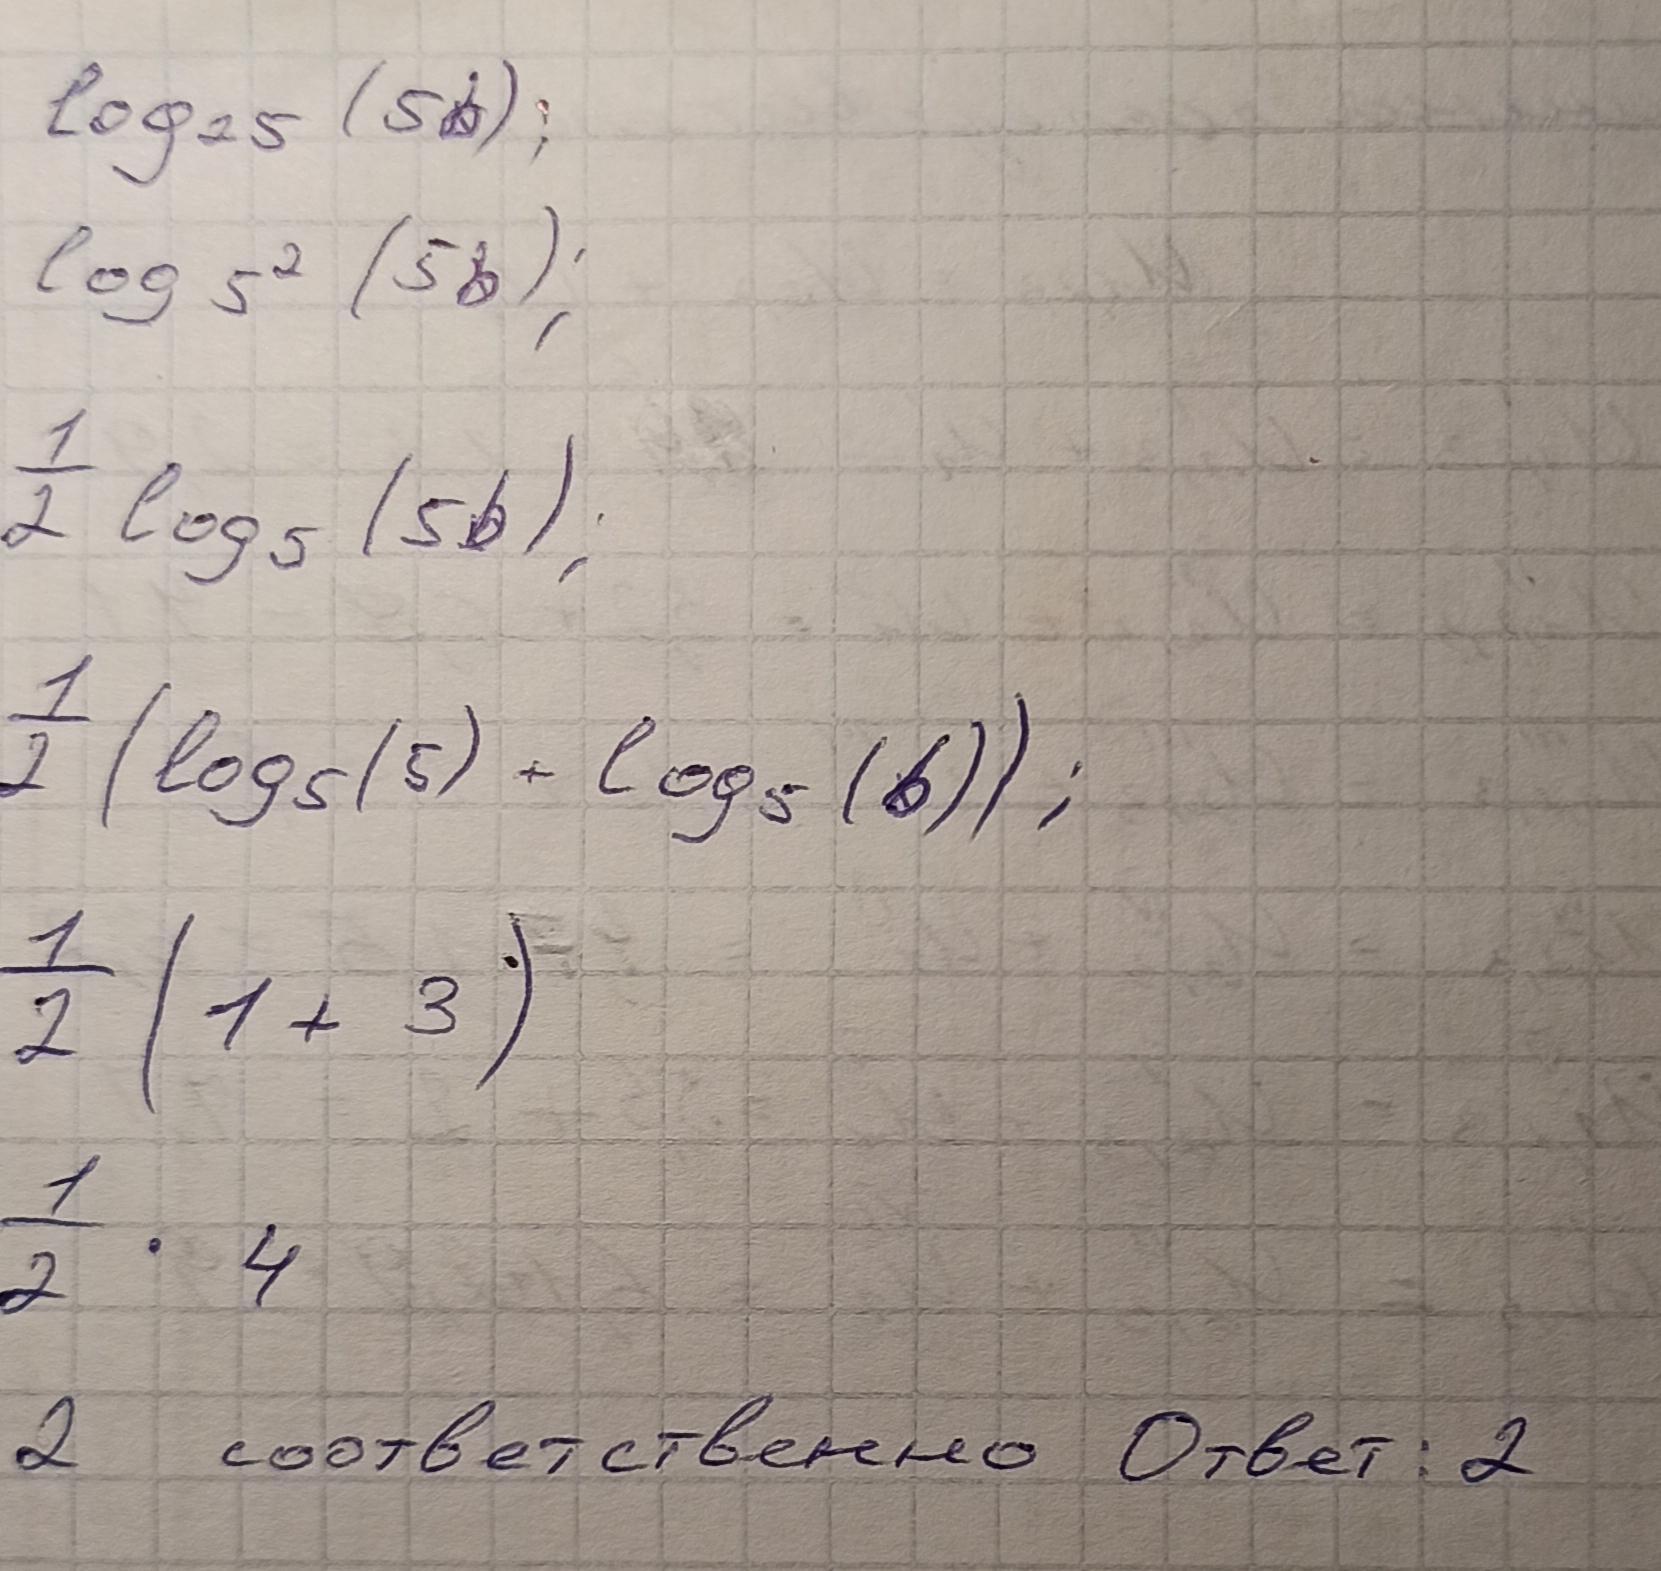 log₂₅ (5b);
log 5² (5b);
1/2 log₅ (5b);
1/2 (log₅(5) + log₅ (b));
1/2 (1 + 3)
1/2 · 4
2 соответственно Ответ: 2